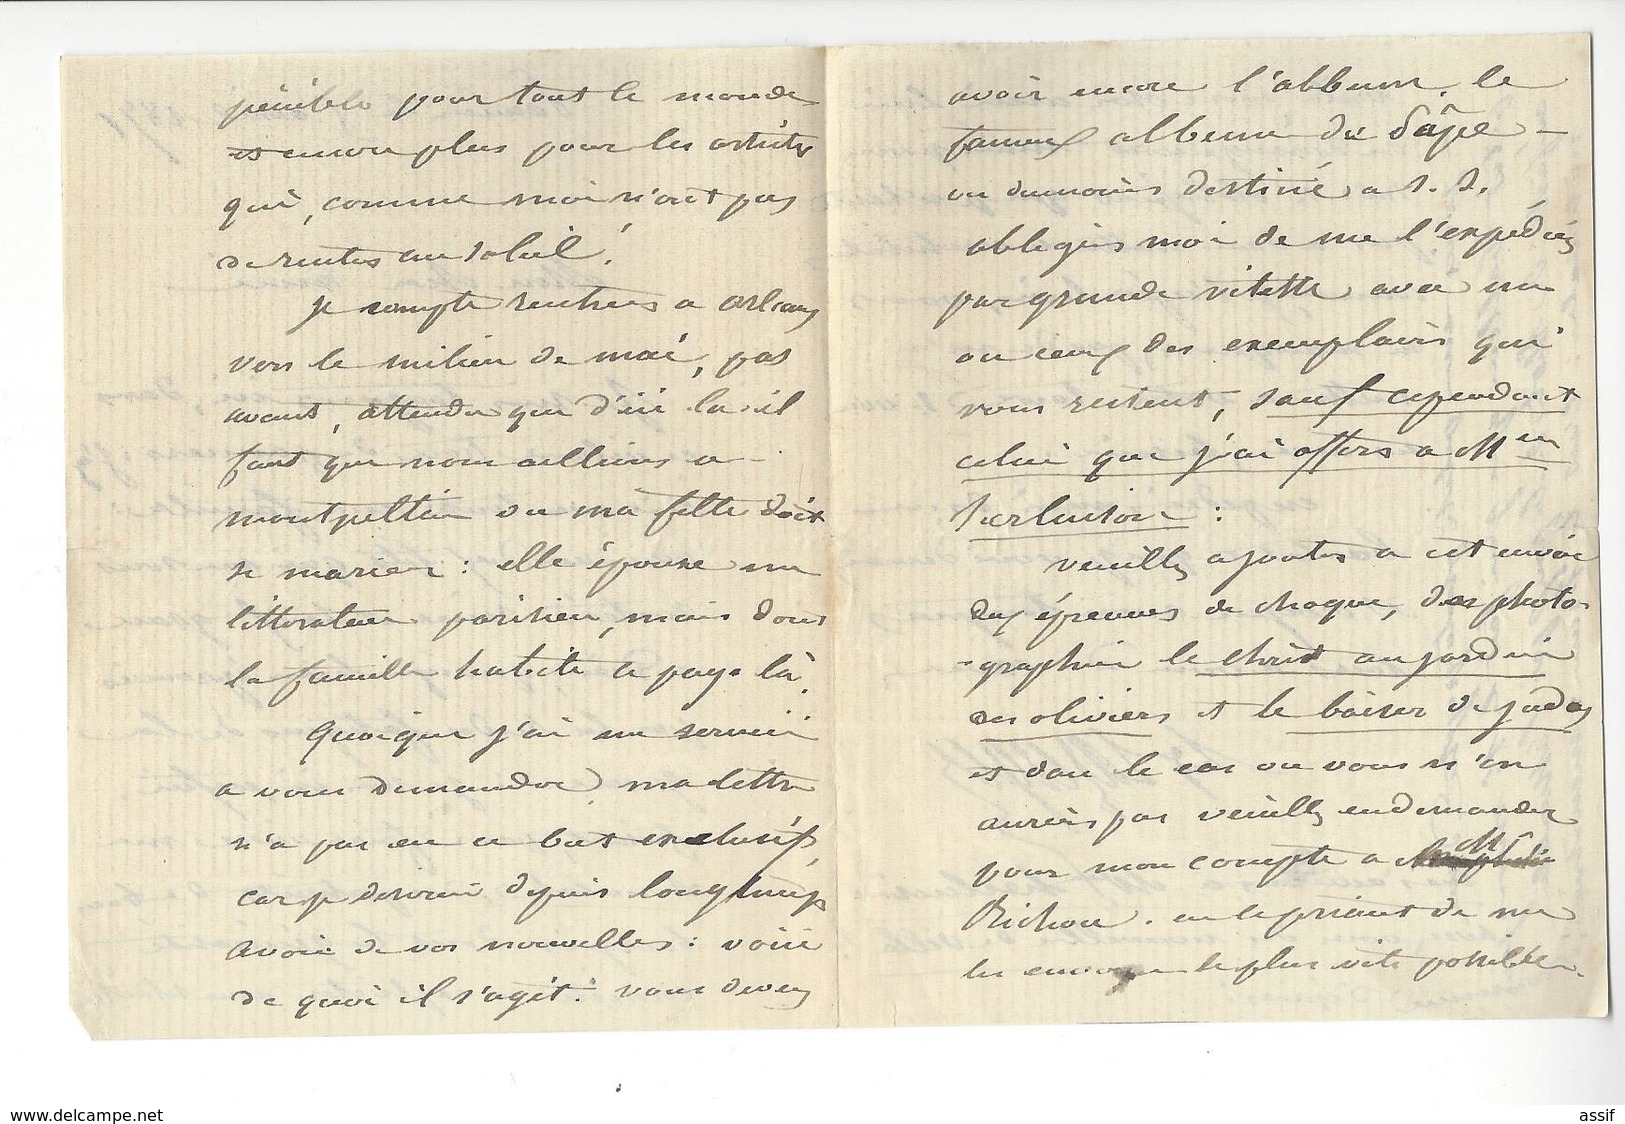 pénible pour tout le monde
et encore plus pour les artistes
qui, comme moi n'ont pas
de rentes au soleil!
Je compte rentrer a orleans
vers le milieu de mai, pas
avant, attendu que d'ici la il
faut que nous allions a
montpellier ou ma fille doit
se marier : elle épouse un
littérateur parisien, mais dont
la famille habite ce pays là.
Quoique j'ai un service
a vous demander, ma lettre
n'a pas eu ce but exclusif,
car je désirais depuis longtemps
avoir de vos nouvelles : voici
de quoi il s'agit : vous devez
avoir encore l'album, le
fameux album du Pâpe —
ou du moins destiné a S. S.
obligés moi de me l'expédier
par grande vitesse avec un
ou ceux des exemplaires qui
vous restent, sauf cependant
celui que j'ai offers a M
:
veuillez ajouter a cet envoie
deux épreuves de chaque, des photo-
-graphies le christ au jardin
des oliviers et le baiser de judas
et dans le cas ou vous n'en
auriès pas veuillez en demander
pour mon compte a Mr
Richou. en le priant de me
les envoyer le plus vite possible.
www.delcampe.net
assif